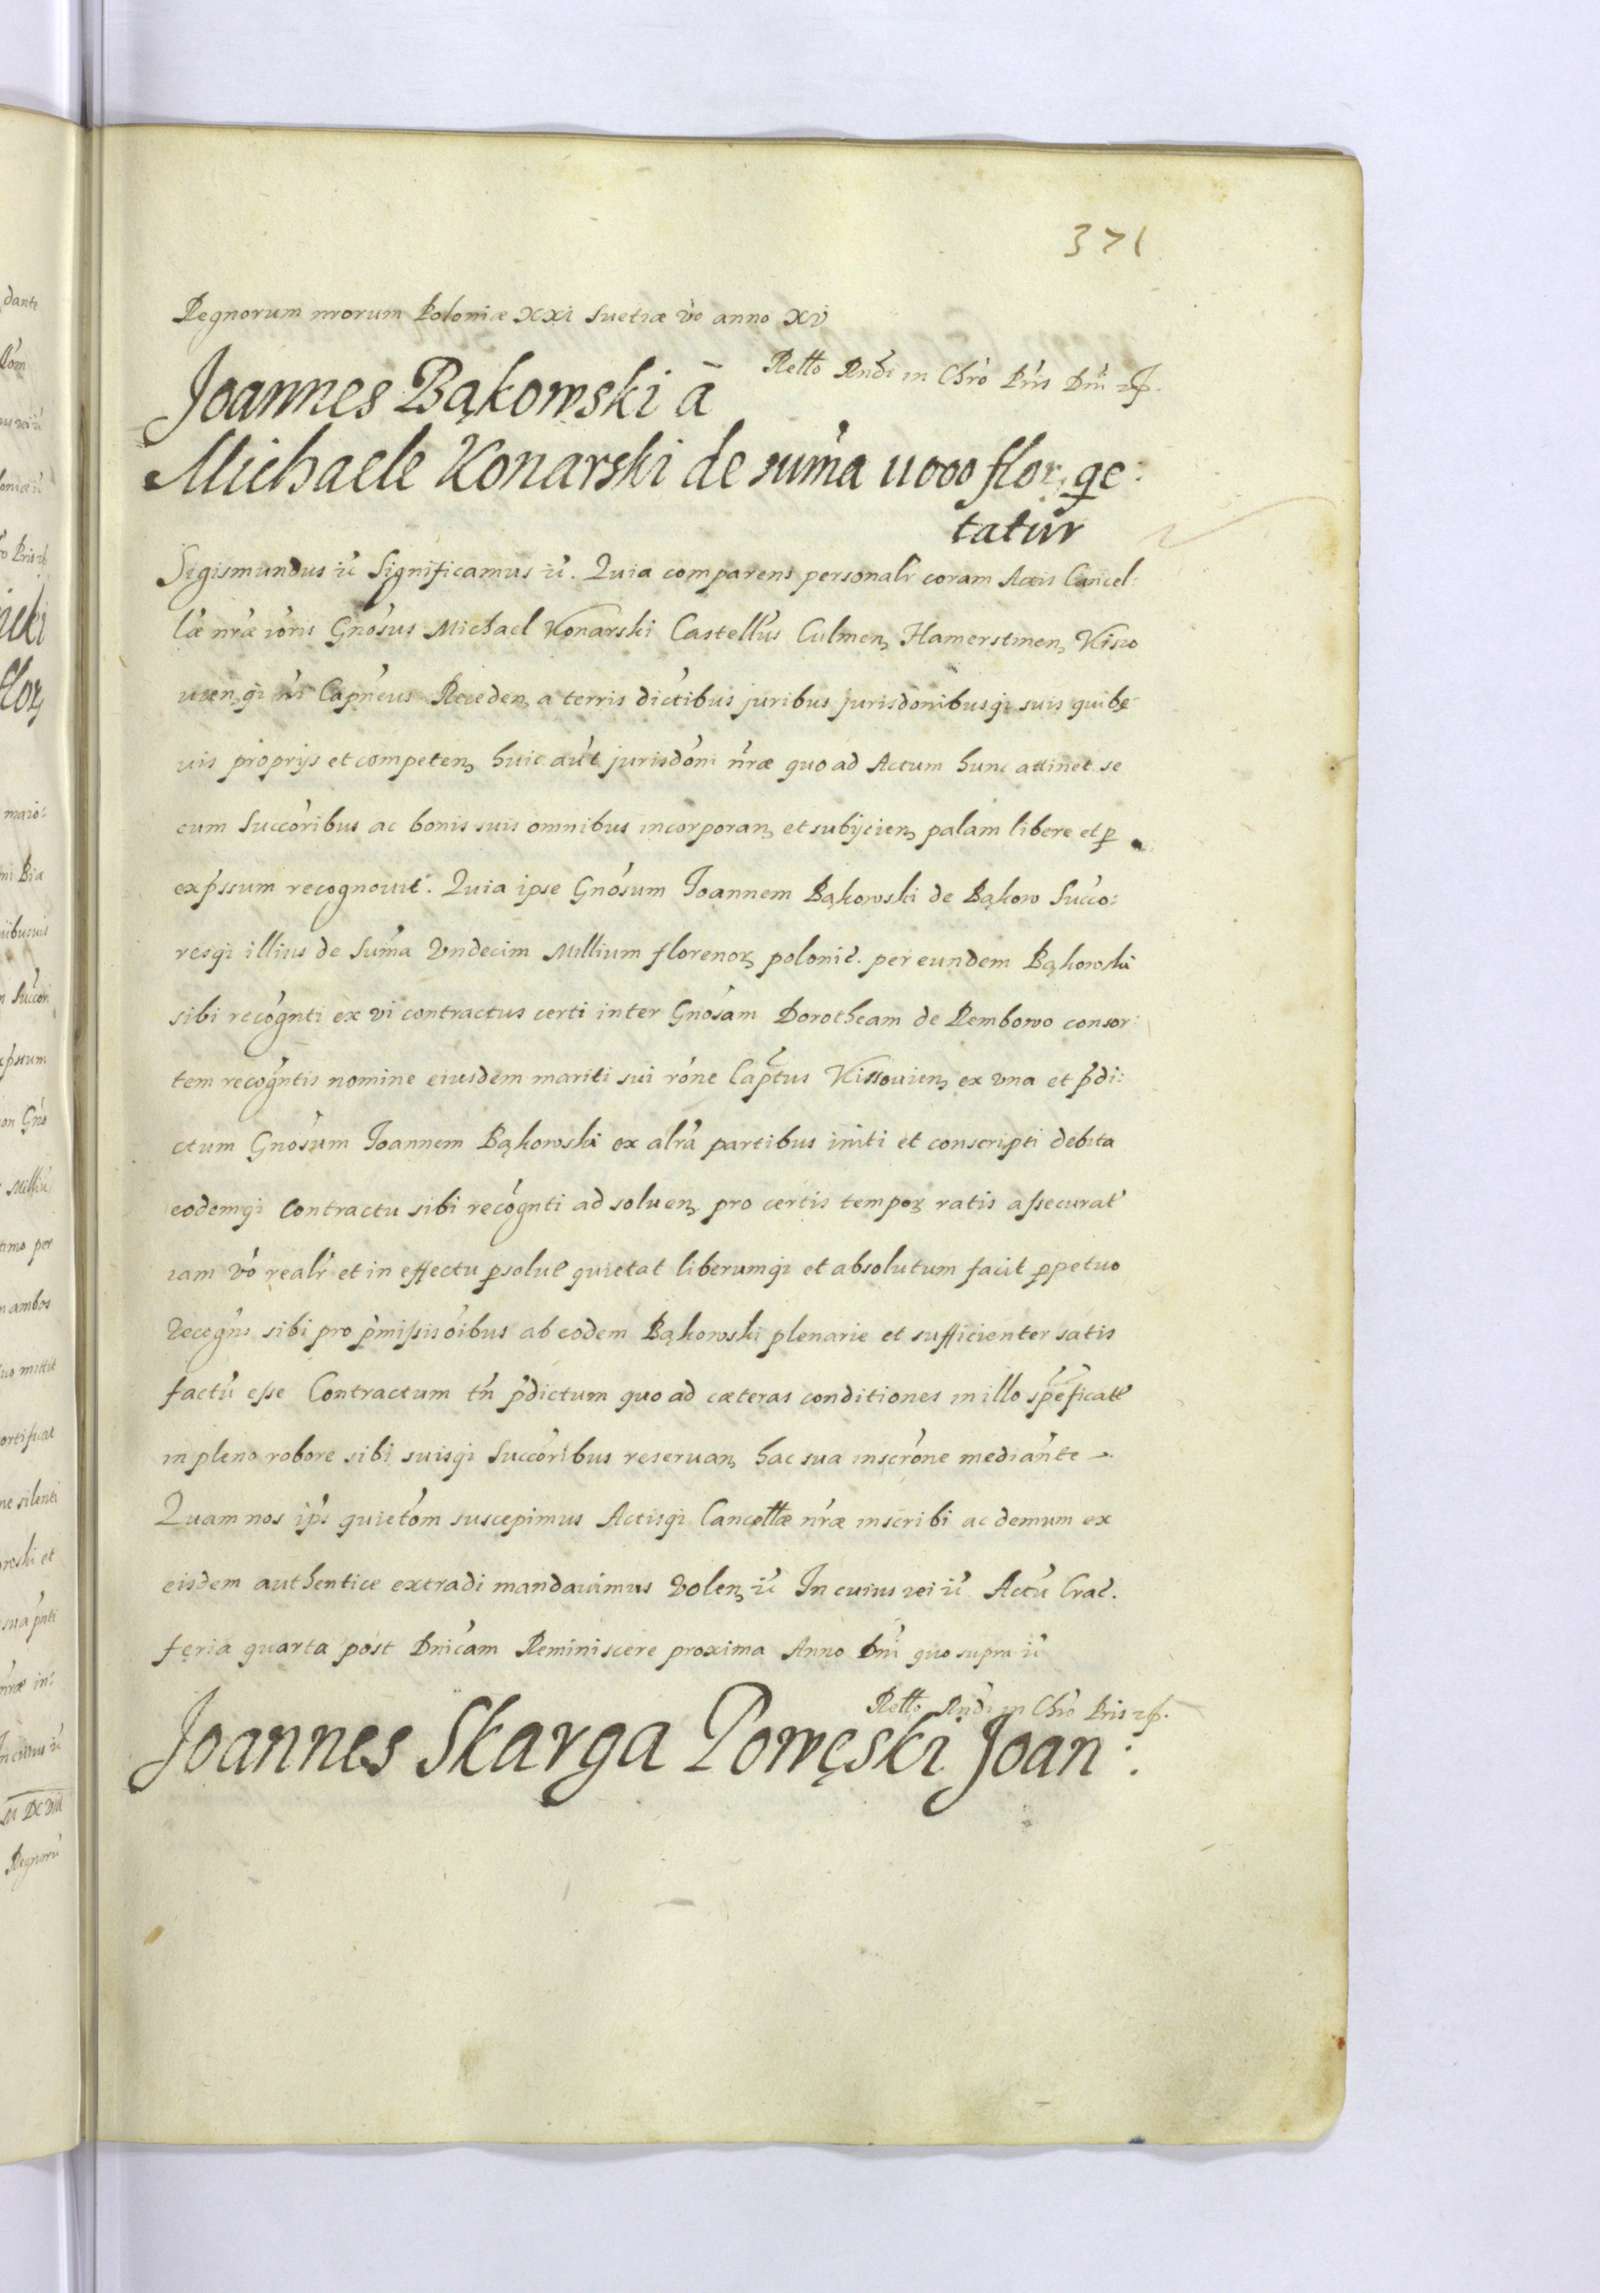 371
Regnorum nrorum Poloniæ XXI Suetiæ vo anno XV
Retto Rndi in Chro Pris Dni
Joannes Bąkowski ā
Michaele Konarski de suma 11000 flor. qe:
tatur
Sigismundus Significamus. Quia comparens personalr coram Actis Cancel:
læ nræ Gnosus Michael Konarski Castellus Culmen, Hamerstinen, Kiszo
uien, Capneus Receden, a terris juribus jurisdonibusqi suis quibę
uis proprijs et competen, huic aut jurisdoni nræ quo ad Actum hunc attinet se
cum Succoribus ac bonis suis omnibus incorporan, et subijcien, palam libere et p
expssum recognouit. Quia ipse Gnosum Joannem Bąkowski de Bąkow Succo:
resqi illius de Suma Vndecim Millium florenoꝝ polonic. per eundem Bąkowski
sibi recognti ex vi contractus certi inter Gnosam Dorotheam de Rembowo consor:
tem recogntis nomine eiusdem mariti sui rone Captus Kissouien, ex vna et pdi:
ctum Gnosum Joannem Bąkowski ex altra partibus initi et conscripti debita
eodemqi Contractu sibi recognti ad soluen, pro certis tempoꝝ ratis assecurat
iam vo realr et in effectu psolut quietat liberumqi et absolutum facit ppetuo
Recogns sibi pro pmissis oibus ab eodem Bąkowski plenarie et sufficienter satis
factu esse Contractum tn pdictum quo ad cæteras conditiones in illo
in pleno robore sibi suisqi Succoribus reseruan, hac sua inscrone mediante
Quam nos ips quietom suscepimus Actisqi Cancellæ nræ inscribi ac demum ex
eisdem authentice extradi mandauimus Volen, In cuius rei Actu Crac.
feria quarta post Dnicam Reminiscere proxima Anno Dni quo supra
Retto Rndi in Chro Pris
Joannes Skarga Powęski Joan: